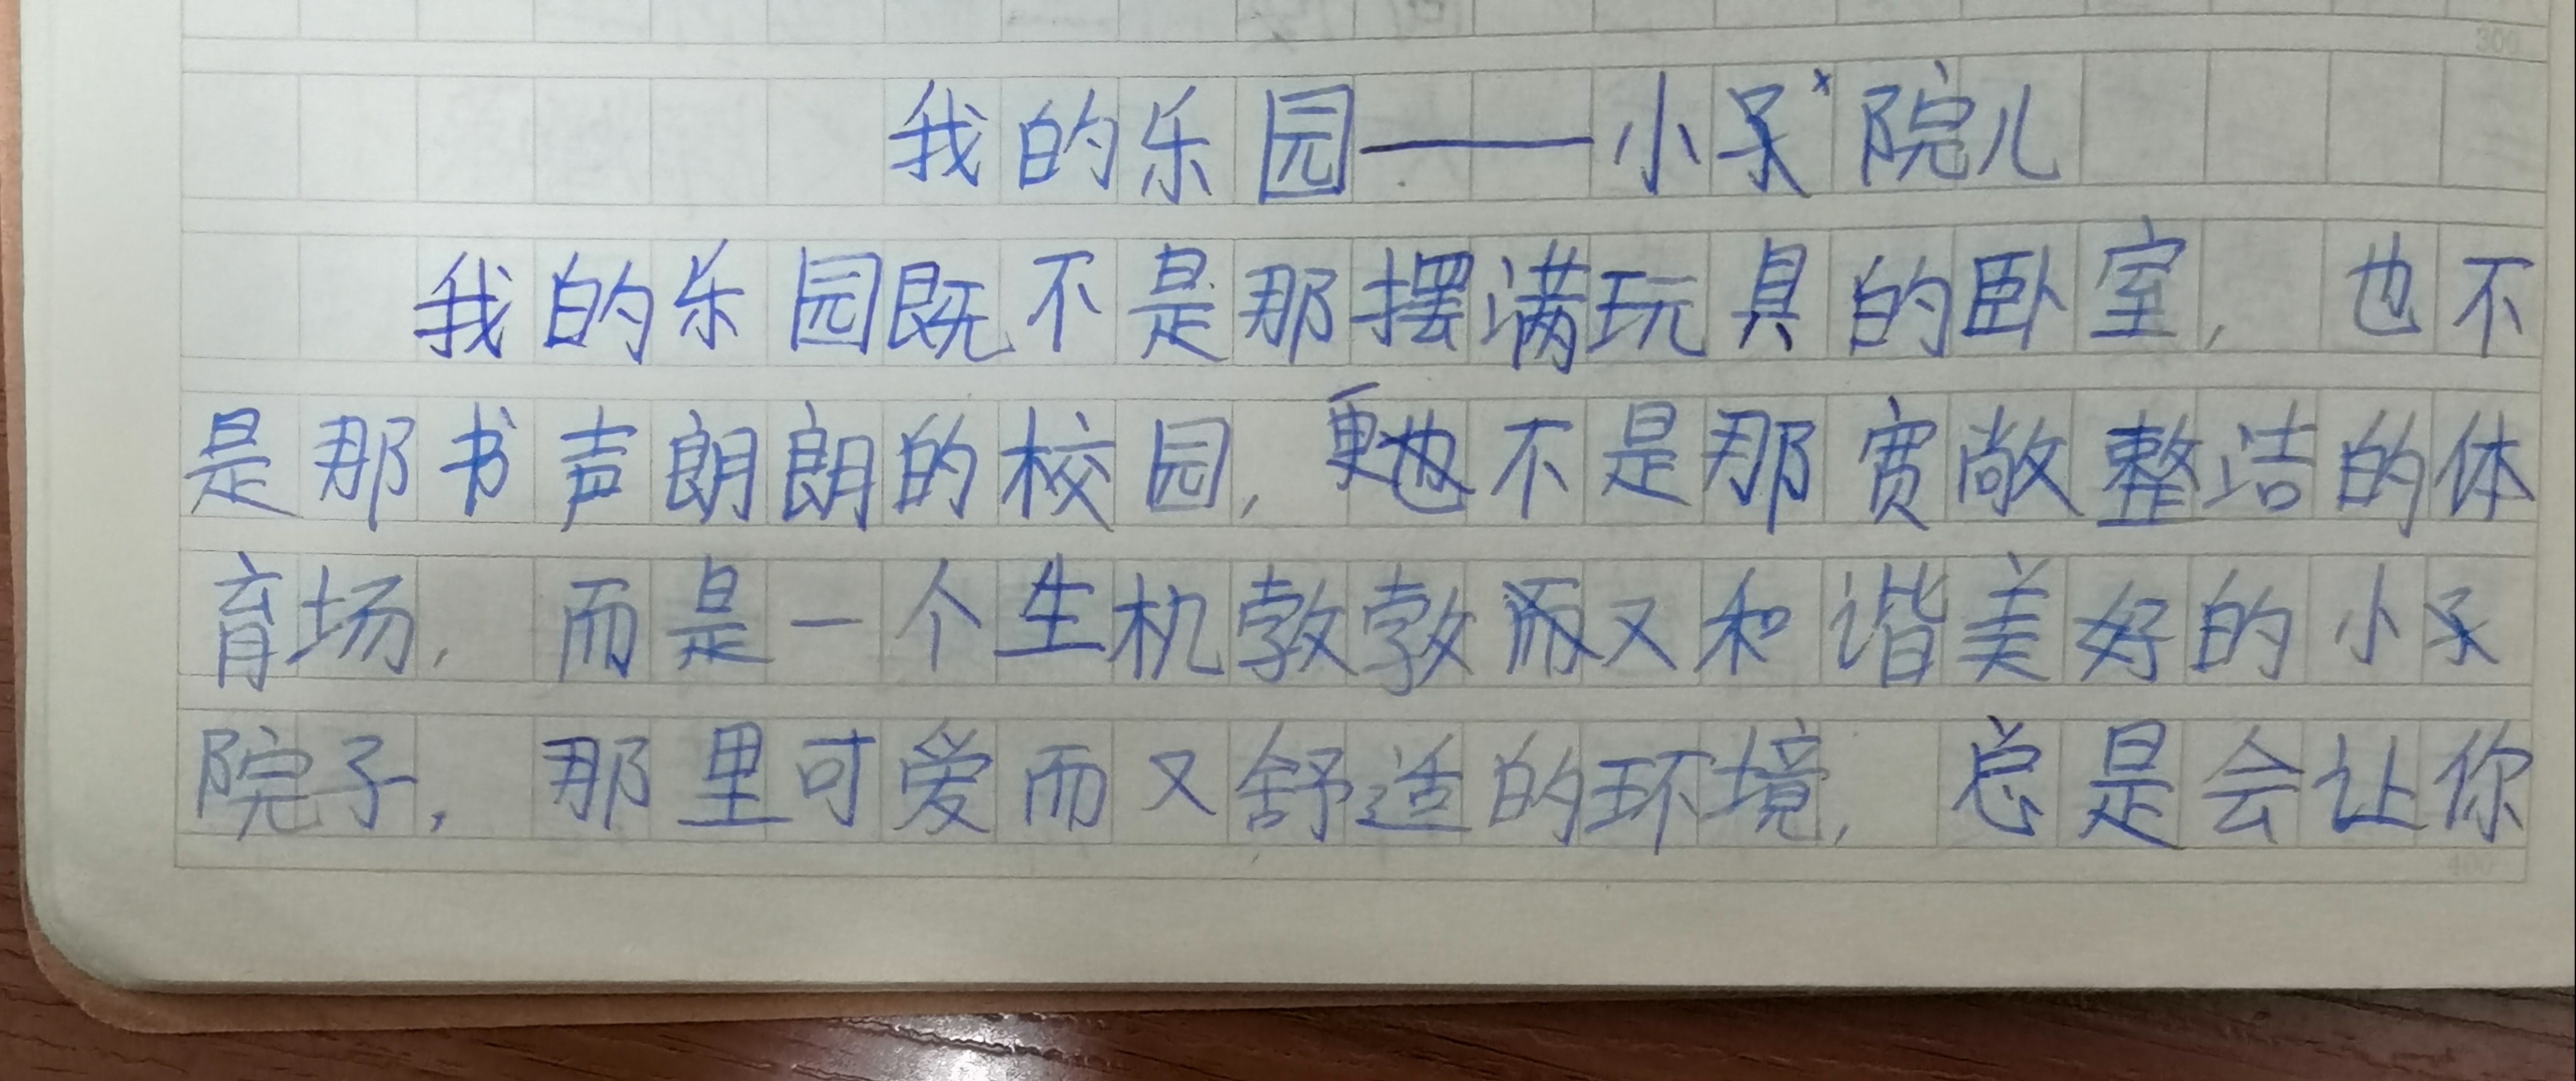 我的乐园——小院儿
我的乐园既不是那摆满玩具的卧室,也不
是那书声朗朗的校园,更也不是那宽敞整洁的体
育场,而是一个生机敦敦而又和谐美好的小
院子,那里可爱而又舒适的环境,总是会让你